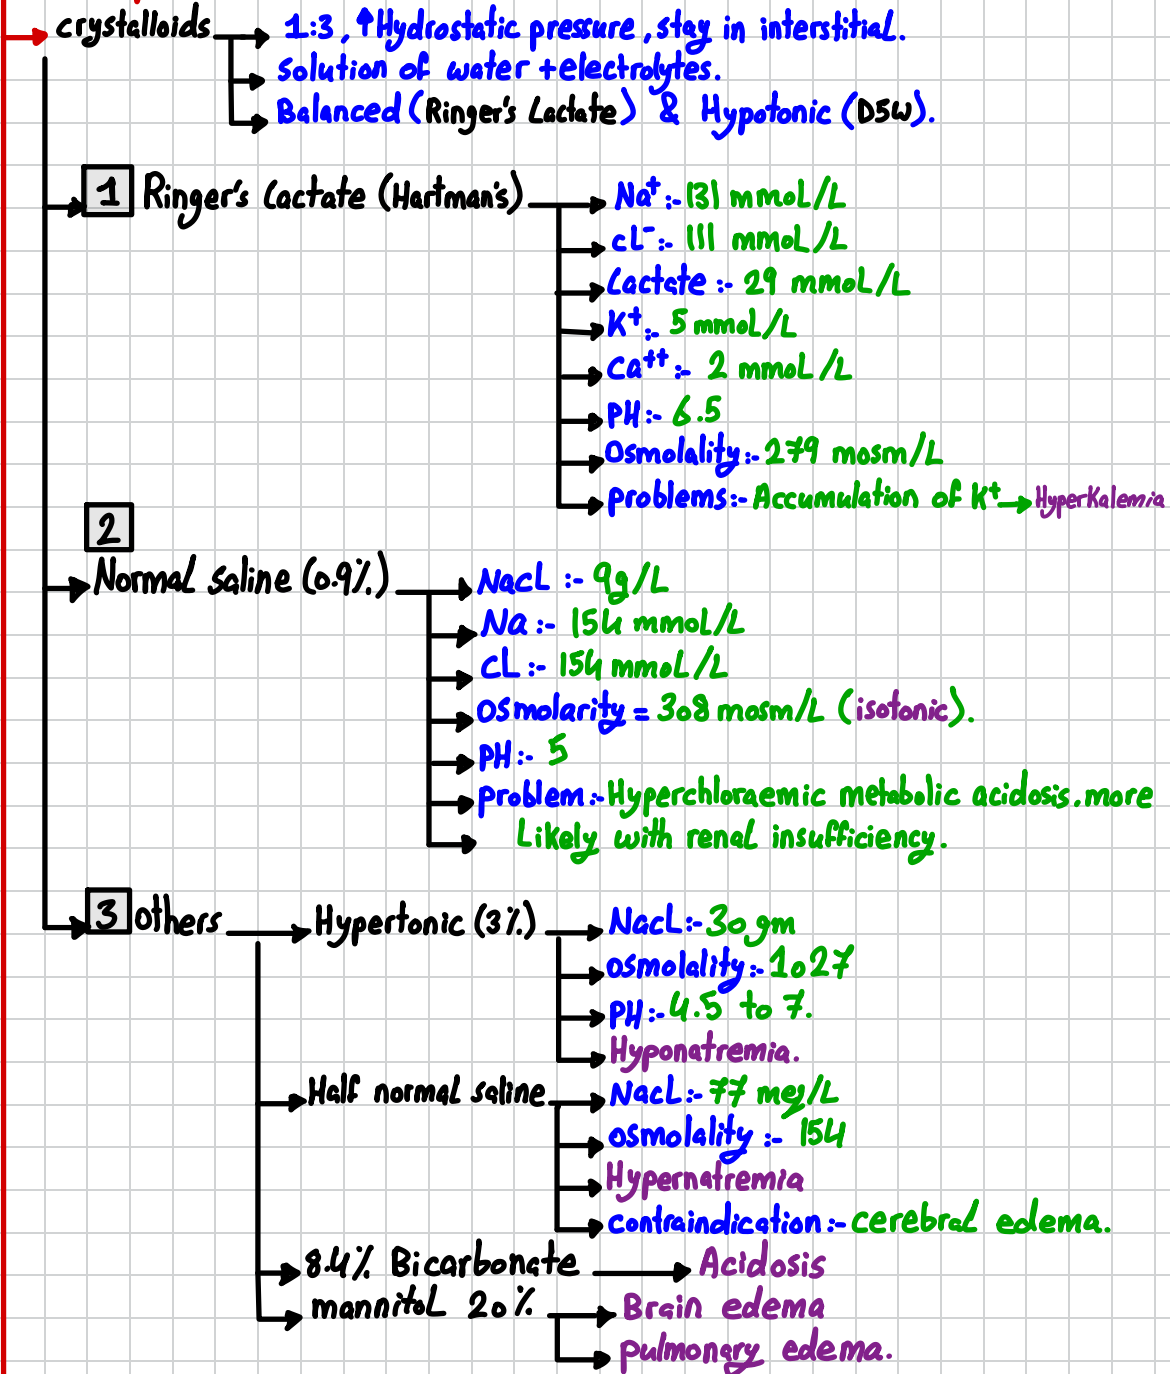 crystalloids
1:3, ↑Hydrostatic pressure, stay in interstitial.
solution of water + electrolytes.
Balanced (Ringer's Lactate) & Hypotonic (D5W).
1 Ringer's Lactate (Hartman's)
Na⁺:- 131 mmol/L
cL⁻:- 111 mmol/L
Lactate :- 29 mmoL/L
K⁺:- 5 mmoL/L
Ca⁺⁺:- 2 mmoL/L
PH:- 6.5
Osmolality:- 279 mosm/L
problems:- Accumulation of K⁺ → HyperKalemia
2
Normal saline (0.9%)
NacL :- 9g/L
Na :- 154 mmol/L
CL :- 154 mmoL/L
Osmolarity = 308 mosm/L (isotonic).
PH:- 5
problem:- Hyperchloraemic metabolic acidosis. more
Likely with renal insufficiency.
3 others
Hypertonic (3%)
NacL:- 30 gm
osmolality:- 1027
PH:- 4.5 to 7.
Hyponatremia.
Half normal saline
NacL:- 77 meq/L
osmolality :- 154
Hypernatremia
contraindication:- cerebral edema.
8.4% Bicarbonate
Acidosis
mannitoL 20%
Brain edema
pulmonary edema.